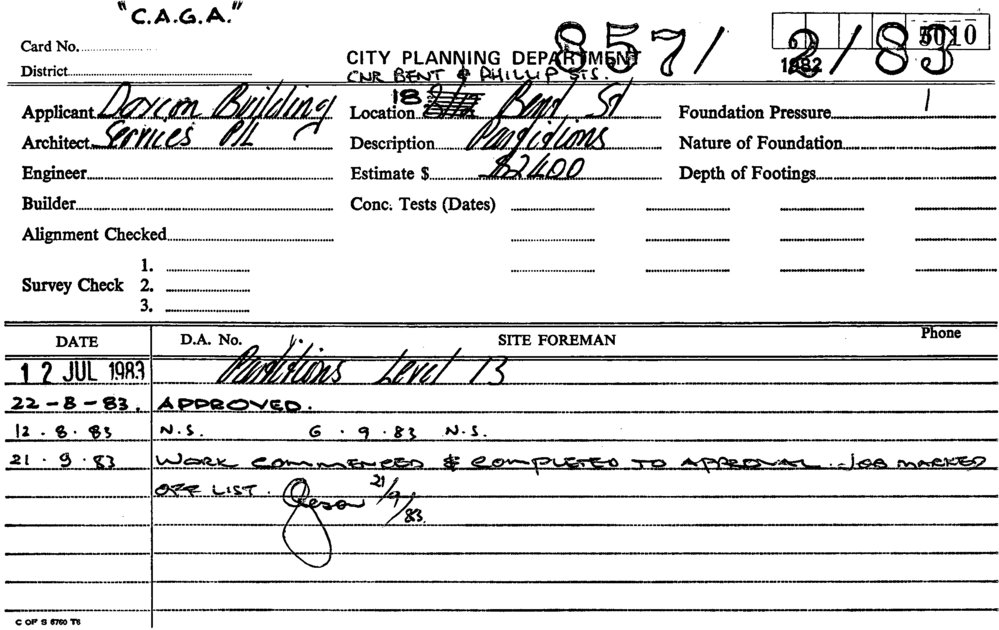 "C.A.G.A."
Card No.
District
CITY PLANNING DEPARTMENT
857/ 2/83
1982
5010
CNR BENT & PHILLIP STS.
Applicant Daxcon Building
Architect Services P/L
Engineer
Builder
Alignment Checked
Survey Check 1.
2.
3.
Location 18 Bent St
Description Partitions
Estimate $ $2400
Conc. Tests (Dates)
Foundation Pressure 1
Nature of Foundation
Depth of Footings
DATE D.A. No. SITE FOREMAN Phone
12 JUL 1983 Partitions Level 13
22-8-83. APPROVED.
12.8.83 N.S. 6.9.83 N.S.
21.9.83 WORK COMMENCED & COMPLETED TO APPROVAL. JOB MARKED
OFF LIST. 21/9/83.
C OF S 6760 T6